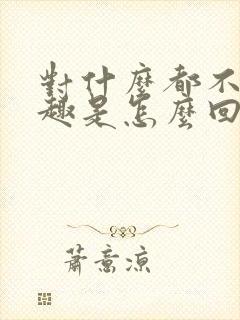 對什麼都不
趣是怎麼回
蕭意涼